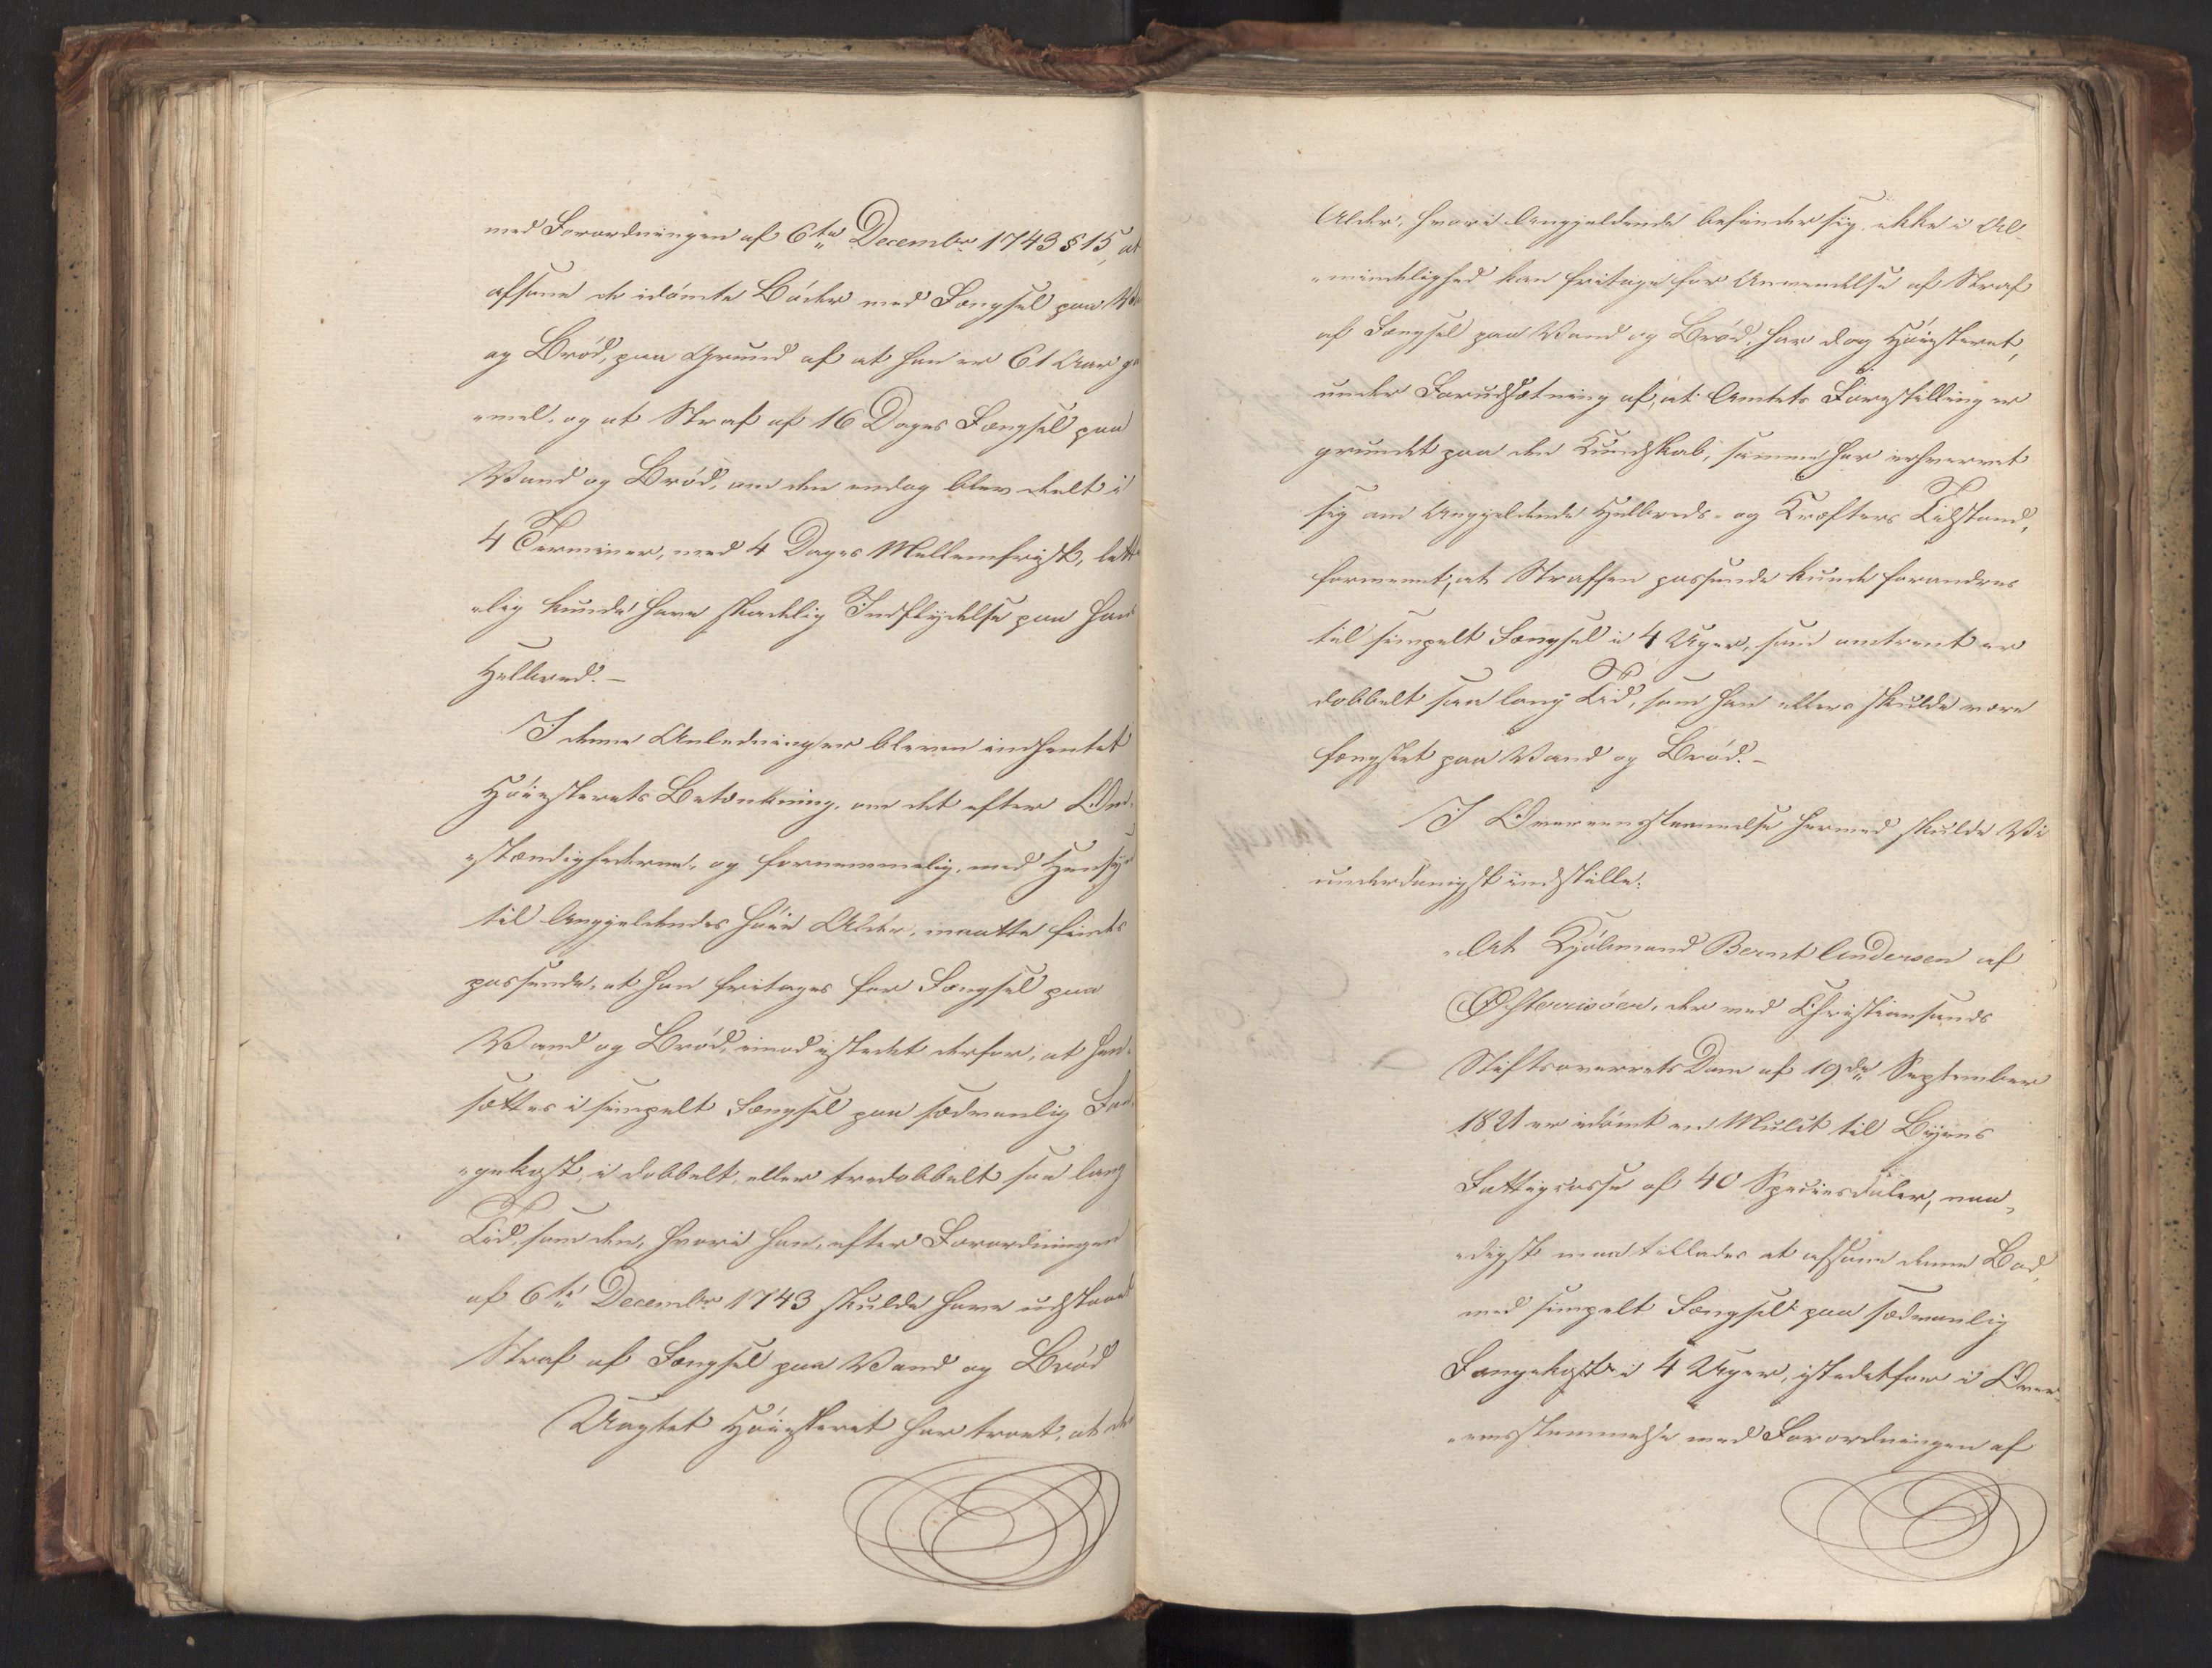 med Forordningen af 6te December 1743 § 15, at
afsone de idömte Böder med Fængsel paa Vand
og Bröd, paa Grund af at han er 61 Aar ga
"mel, og at Straf af 16 Dages Fængsel paa
Vand og Bröd, om den endog blev deelt i
4 Terminer, med 4 Dages Mellemfrist, lett
"lig kunde have skadelig Indflydelse paa hans
Helbred. –
I denne Anledning er bleven indhentet
Höiesterets Betænkning, om det efter Om-
"stændighederne, og fornemmelig, med Hensyn
til Angjeldendes höie Alder, maatte findes
passende, at han fritages for Fængsel paa
Vand og Bröd, imod istedet derfor, at hen-
sættes i simpelt Fængsel paa sædvanlig Fan-
"gekost, i dobbelt, eller tredobbelt saa lang
Tid, som den, hvori han, efter Forordningen
af 6te December 1743 skulde have udstaaet
Straf af Fængsel paa Vand og Bröd
Uagtet Höiesteret har troet, at den
Alder, hvori Angjeldende befinder sig, ikke i Al-
"mindelighed kan fritage for Anvendelse af Straf
af Fængsel paa Vand og Bröd, har dog Höiesteret,
under Forudsætning af, at Amtets Forestilling er
grundet paa den Kundskab, samme har erhvervet
sig om Angjeldende Helbreds- og Kræfters Tilstand,
formeent, at Straffen passende kunde forandres
til simpelt Fængsel i 4 Uger, som omtrent er
dobbelt saa lang Tid, som han ellers skulde være
fængslet paa Vand og Bröd. –
I Overeensstemmelse hermed skulde Vi
underdanigst indstille:
"At Kjöbmand Bernt Andersen af
Östeerrisöer, der ved Christiansands
Stiftsoverrets Dom af 19de September
1821 er idömt en Mulct til Byens
Fattigcasse af 40 Speciesdaler, naa-
"digst maa tillades at afsone denne Bod,
med simpelt Fængsel paa sædvanlig
Fangekost i 4 Uger, istedetfor i Over-
"eensstemmelse med Forordningen af